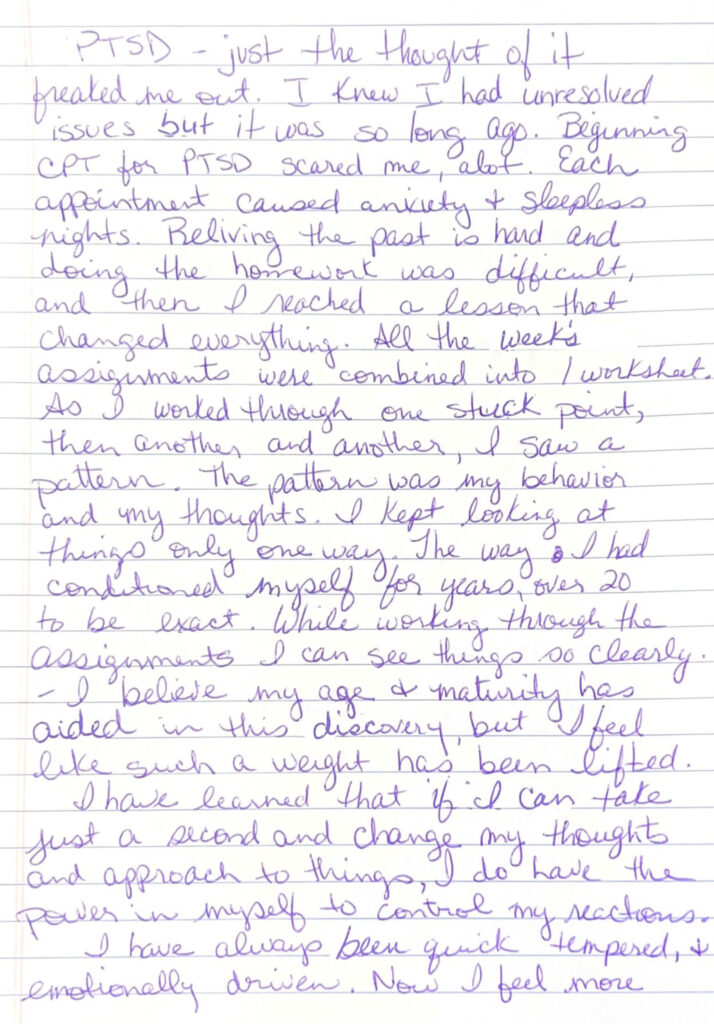 PTSD - just the thought of it
freaked me out. I knew I had unresolved
issues but it was so long ago. Beginning
CPT for PTSD scared me, alot. Each
appointment caused anxiety & sleepless
nights. Reliving the past is hard and
doing the homework was difficult,
and then I reached a lesson that
changed everything. All the week's
assignments were combined into 1 worksheet.
As I worked through one stuck point,
then another, and another, I saw a
pattern. The pattern was my behavior
and my thoughts. I kept looking at
things only one way. The way I had
conditioned myself for years, over 20
to be exact. While working through the
assignments I can see things so clearly.
- I believe my age & maturity has
aided in this discovery, but I feel
like such a weight has been lifted.
I have learned that if I can take
just a second and change my thoughts
and approach to things, I do have the
power in myself to control my reactions.
I have always been quick tempered, &
emotionally driven. Now I feel more